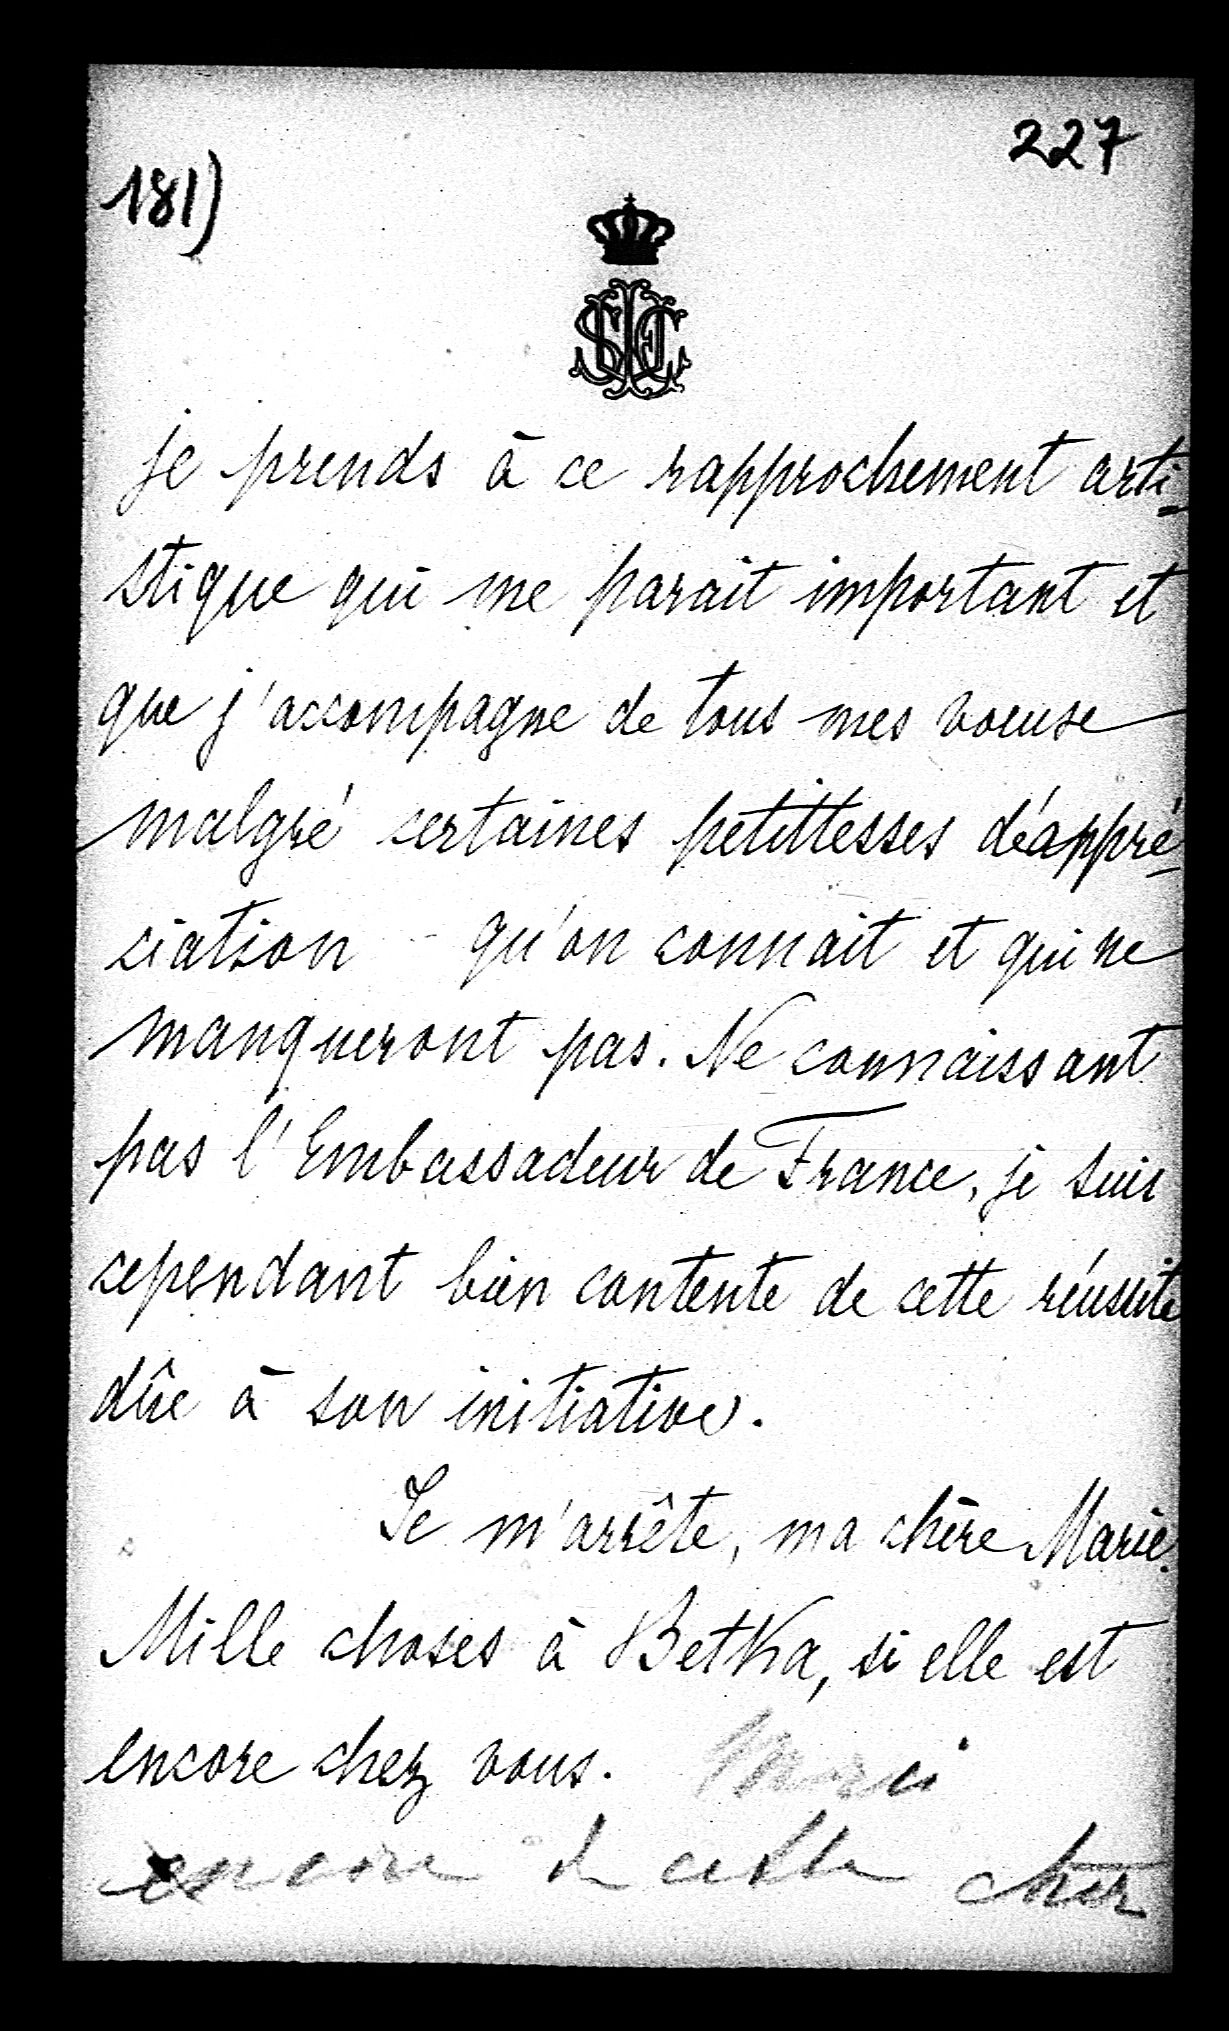 227
181)
je prends à ce rapprochement arti-
stique qui me parait important et
que j'accompagne de tous mes voeuse
malgré certaines petittesses déappré-
ciatson qu'on connait et qui ne
manqueront pas. Ne connaissant
pas l'Embassadeur de France, je suis
cependant bien contente de cette réussite
dûe à son initiative.
Je m'arrête, ma chère Marie.
Mille choses à Betka, si elle est
encore chez vous. Merci
encore de cette cher